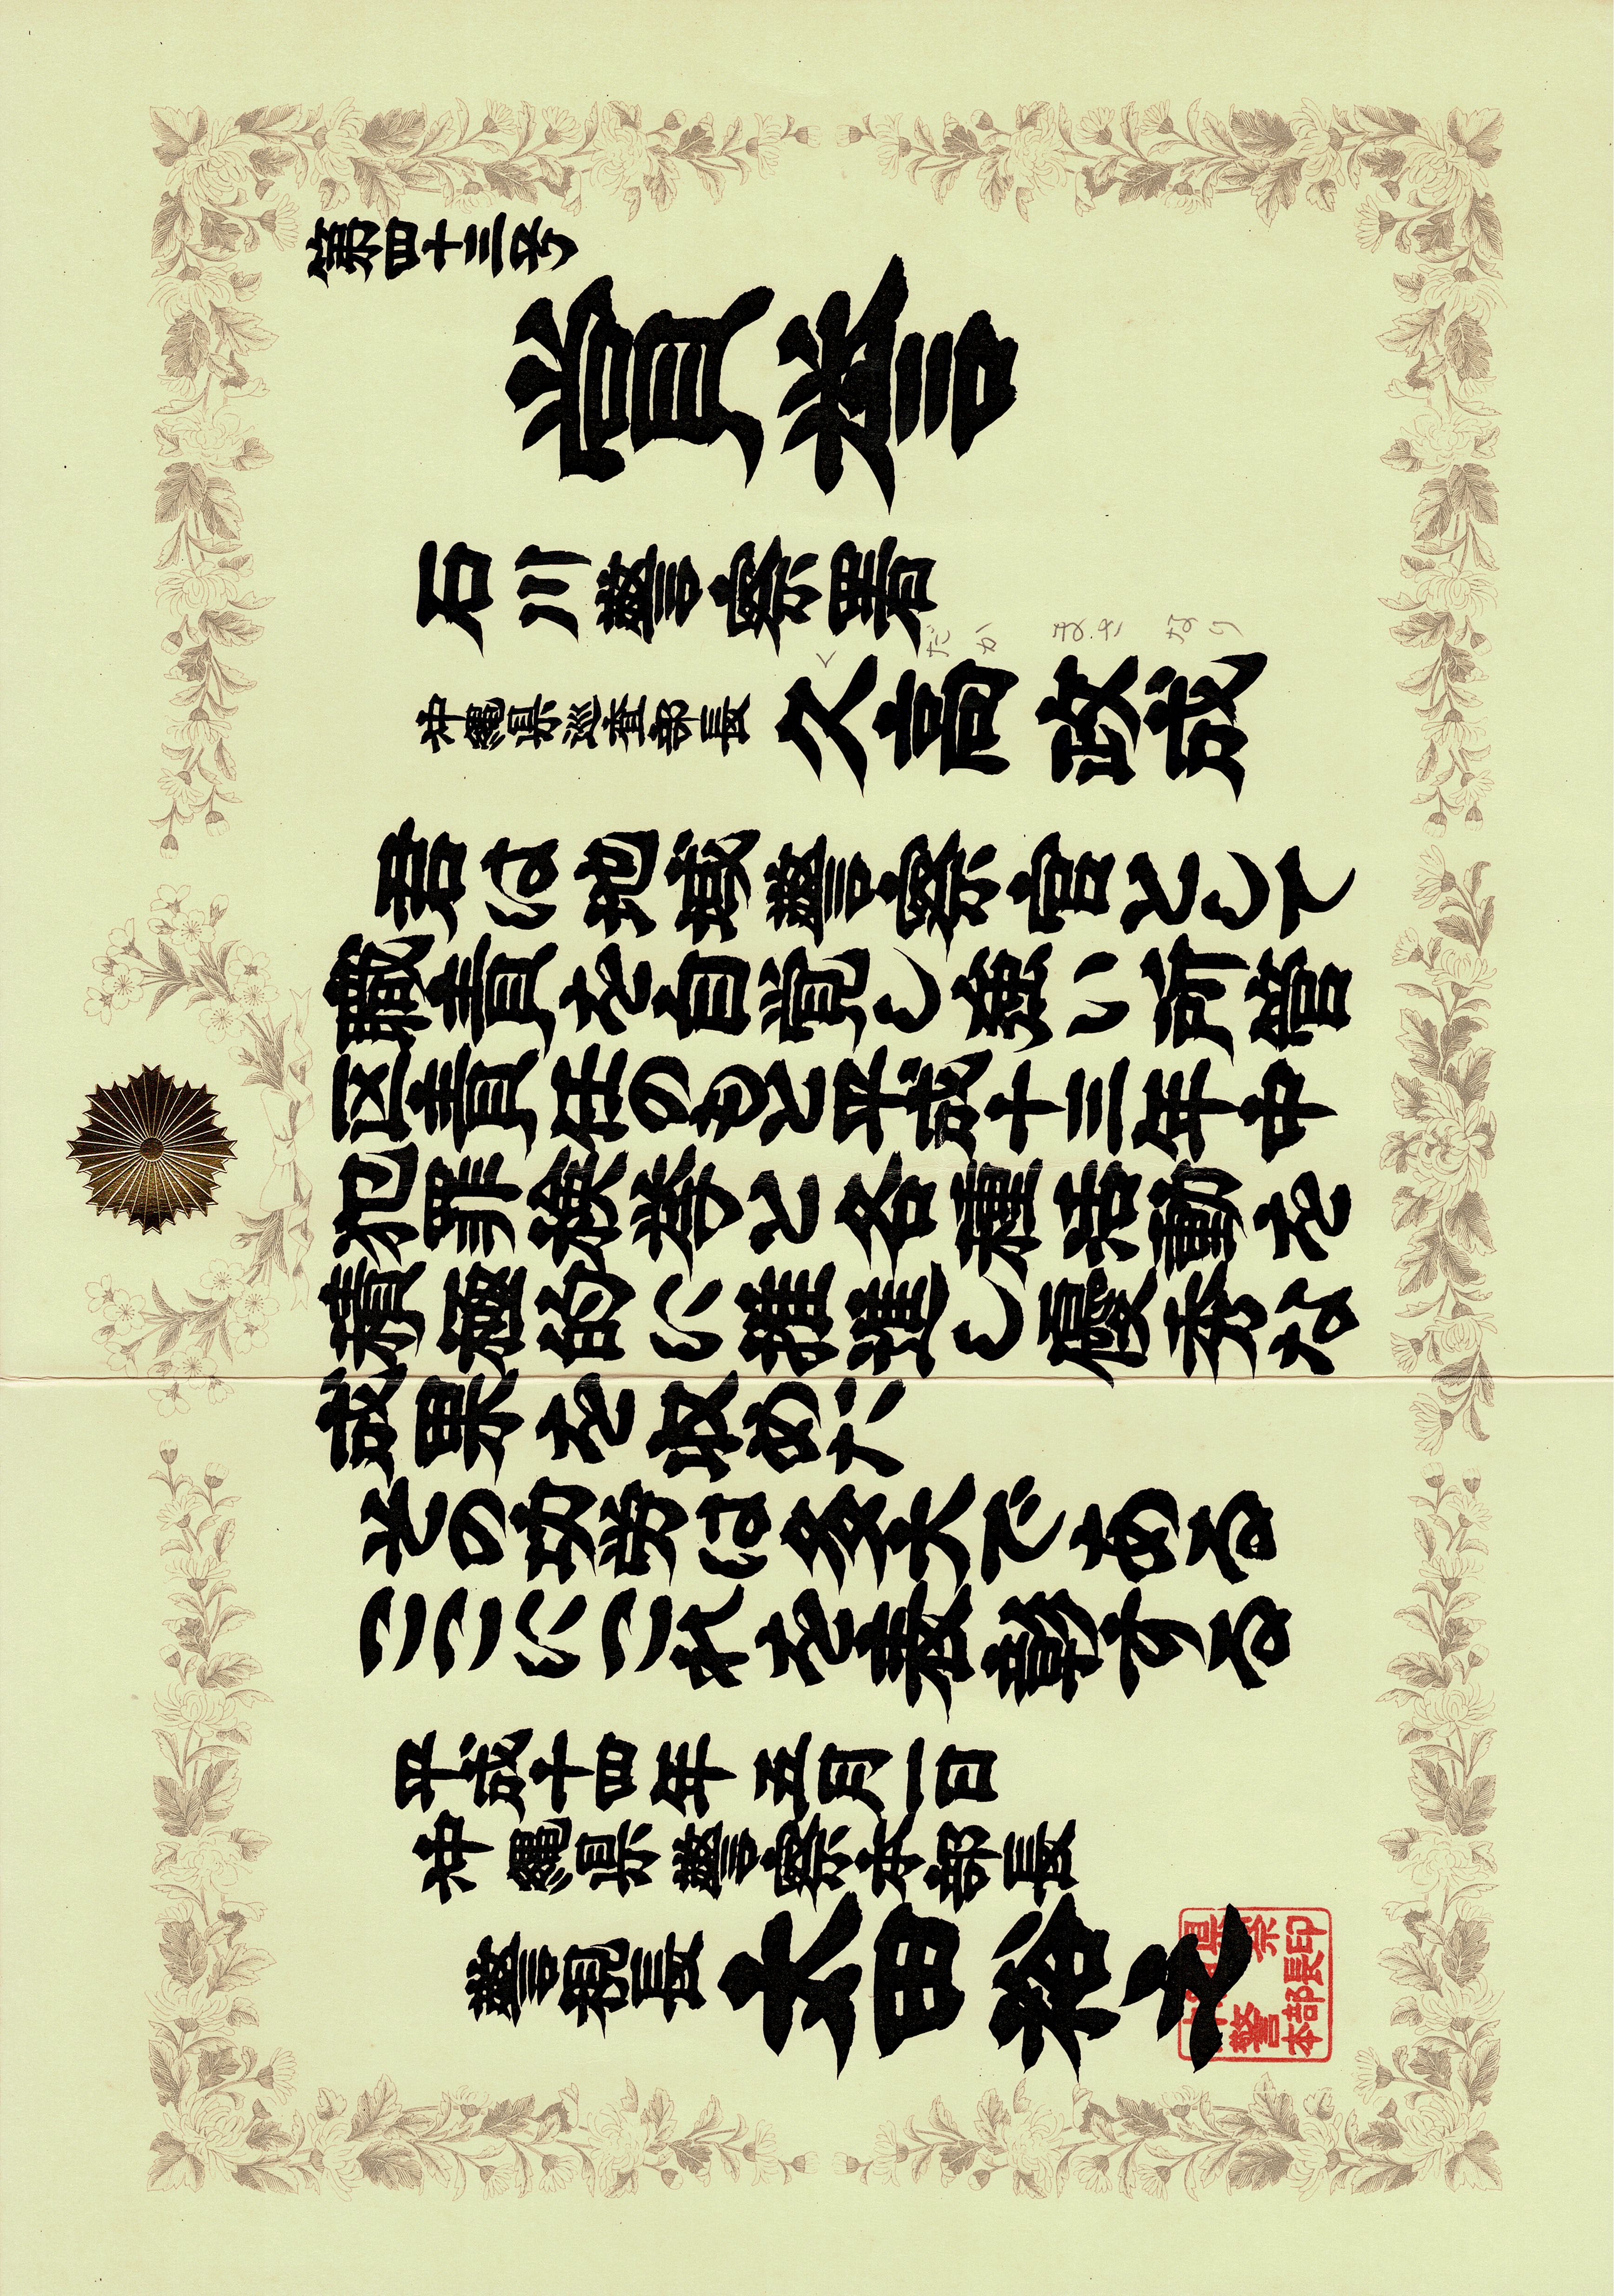 第四十三号
賞誉
石川警察署
くだか まさなり
沖縄県巡査部長 久高政成
君は地域警察官として
職責を自覚し強い所管
区責任のもと平成十三年中
犯罪検挙と各種活動を
積極的に推進し優秀な
成果を収めた
その功労は多大である
ここにこれを表彰する
平成十四年五月一日
沖縄県警察本部長
警視長 太田裕之
沖縄県警察本部長印